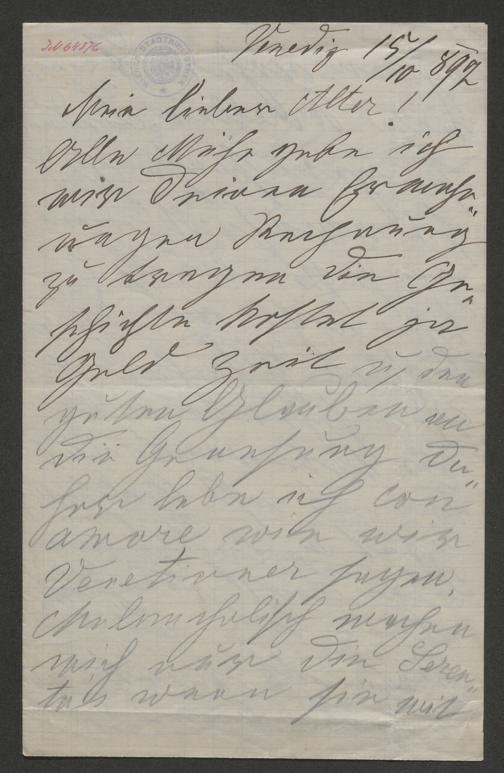 Venedig 15/10 899
Mein lieber Alter!
Alle Mühe gebe ich
mir Deinen Ermah„
nungen Rechnung
zu tragen die Ge„
schichte kostet ja
Geld Zeit u, den
guten Glauben an
die Genesung Da„
her lebe ich con
amore wie wir
Venetianer sagen.
Melancholisch machen
mich nur die Seren„
tas wenn sie mit